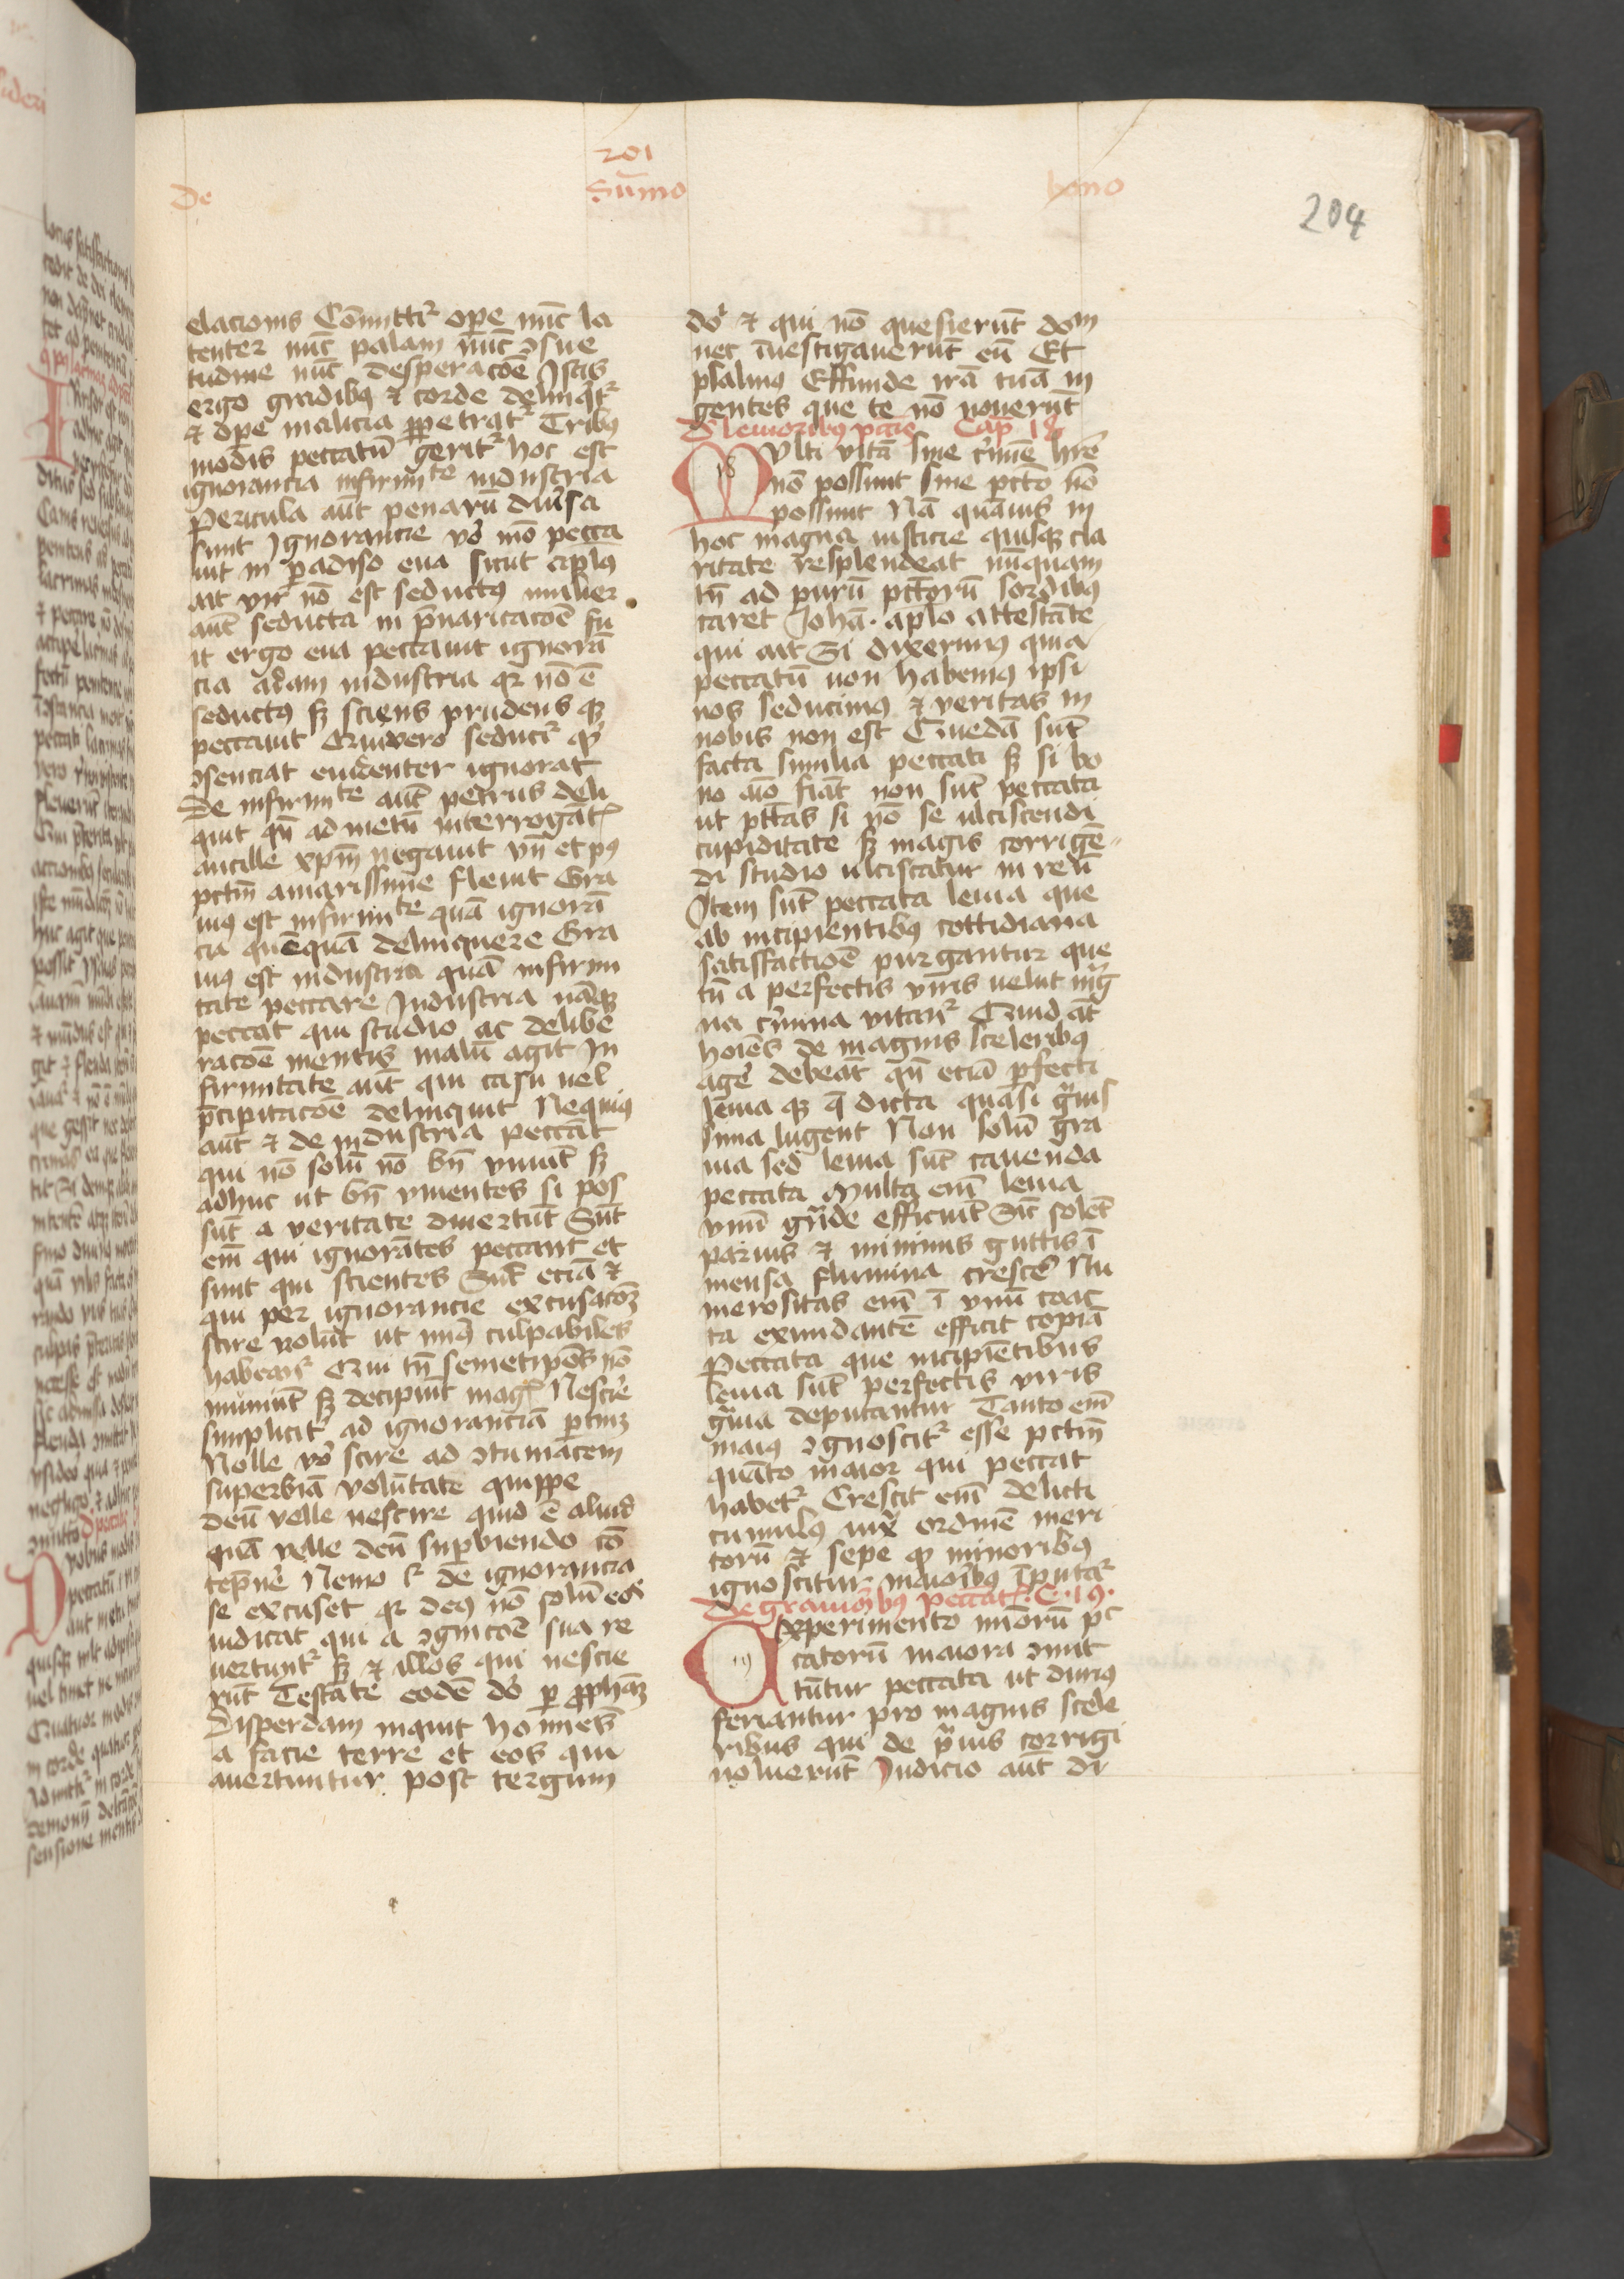 201
De Su̅mo bono
204
elacionis Co̅mittit᷑ ope nu̅c la
tenter nu̅c palam nu̅c ꝯsue
tudine nu̅c desperaco̅e Istis
ergo gradibꝰ ⁊ corde delinq̇t᷑
⁊ ope malicia ꝑpetrat᷑ Tribꝰ
modis peccatu̅ gerit᷑ hoc est
ignorancia infirmi te industria
Pericula au̅t penaru̅ diu̓sa
sunt Ignorancie vo̓ mo̅ pecca
uit in ꝑadiso eua sicut apl̅us
ait vir no̅ est seductꝰ mulier
aut̅ seducta in p̅uaricaco̅e fu
it ergo eua peccauit ignora̅
cia adam industria qr no̅ e̅
seductꝰ sꝫ sciens prudens qꝫ
peccauit Qui vero seducit᷑ qͥd
ꝯsenciat euidenter ignorat
De infirmi te aut̅ petrus deli
quit qn̅ ad metu̅ interrogant᷑
ancille xp̅m negauit vn̅ et pꝰ
pct̅m amarissime fleuit Gra
uiꝰ est infirmi te qua̅ ignora̅
cia que̅qua̅ delinquere Gra
uiꝰ est industria qua̅ infirmi
tate peccare Industria na̅qꝫ
peccat qui studio ac delibe
raco̅e mentis malu̅ agit In
firmitate aut̅ qui casu uel
p̅cipitaco̅e delinquit Nequiꝰ
aut̅ ⁊ de industria pecca̅t
qui no̅ solu̅ no̅ bn̅ viuut̅ sꝫ
adhuc ut bn̅ viuentes si pos
sut̅ a veritate diuertut̅ Sut̅
em̅ qui ignora̅tes peccant et
sunt qui scientes Sut̅ ecia̅ ⁊
qui per ignorancie excusaco̅ꝫ
scire nolu̅t ut miꝰ culpabiles
habeant᷑ Qui tn̅ semetipo̅s no̅
muniut̅ sꝫ decipiut̅ mag᷑ Nescire
simplicit᷑ ad ignorancia̅ ꝑtinꝫ
Nolle vo̓ scire ad ꝯtumacem
superbia̅ volu̅tate̅ quippe
deu̅ velle nescire quid e̅ aliud
qua̅ velle deu̅ supbiendo co̅
tep̅ne̓ Nemo g̊ de ignorancia
se excuset qr deꝰ no̅ solu̅ eos
iudicat qui a ꝯgnico̅e sua re
uertunt᷑ sꝫ ⁊ illos qui nescie
rut̅ Testa̅te eode̅ do̓ ꝑ ꝓpha̅ꝫ
Disperdam inquit homi̅es
a facie terre et eos qui
auertuntur post tergum
do̓ ⁊ qui no̅ quesierut̅ dom
nec i̅uestigauerut̅ eu̅ Et
psalmꝰ Effunde ira̅ tua̅ in
gentes que te no̅ nouerut̅
De leuioribus pcc̅is Cap 18
18
Multi vita̅ sine c̓mi̅e hr̅e
no̅ possunt sine pct̅o no̅
possunt Na̅ qua̅uis in
hoc magna iusticie quisqꝫ cla
ritate resplendeat nu̅quam
tn̅ ad puru̅ pct̅oru̅ sordibꝰ
caret Joha̅. apl̅o attesta̅te
qui ait Si dixerimꝰ quia
peccatu̅ non habemꝰ ipsi
nos seducimꝰ ⁊ veritas in
nobis non est Queda̅ sut̅
facta similia peccati sꝫ si bo
no a̅io fia̅t non sut̅ peccata
ut pt̅tas si no̅ se ulciscendi
cupiditate sꝫ magis corrige̅
di studio ulciscatur in reu̅
Item sut̅ peccata leuia que
ab incipientibꝰ cottidiana
satisfactio̅e purgantur que
tn̅ a perfectis viris uelut mag
na c̓mina vitant᷑ Quid at̅
ho̅ies de magnis sceleribꝰ
age̓ debea̅t qn̅ ecia̅ ꝑfecti
leuia qꝫ q̅ dicta quasi gͣuis
sima lugent Non solu̅ gra
uia sed leuia sut̅ cauenda
peccata Multa em̅ leuia
vnu̅ gͣnde efficiut̅ Sic̅ sole̅t
paruis ⁊ minimis guttis i̅
mensa flumina cresce̓ Nu
merositas em̅ i̅ vnu̅ coac
ta exundante̅ efficit copia̅
Peccata que incipie̅tibus
leuia sut̅ perfectis viris
gͣuia deputantur Tanto em̅
maiꝰ ꝯgnoscit᷑ esse pct̅m
qua̅to maior qui peccat
habet᷑ Crescit em̅ delicti
cumulꝰ iux̅ ordine̅ meri
toru̅ ⁊ sepe qͥ minoribꝰ
ignoscitur maioribꝰ i̅putat᷑
De grauioribus peccat᷑. C. 19.
19
Experimento mi̅oru̅ pc
catoru̅ maiora ꝯmit
tu̅tur peccata ut duriꝰ
feriantur pro magnis scele
ribus qui de pͣuis corrigi
noluerut̅ Iudicio aut̅ di